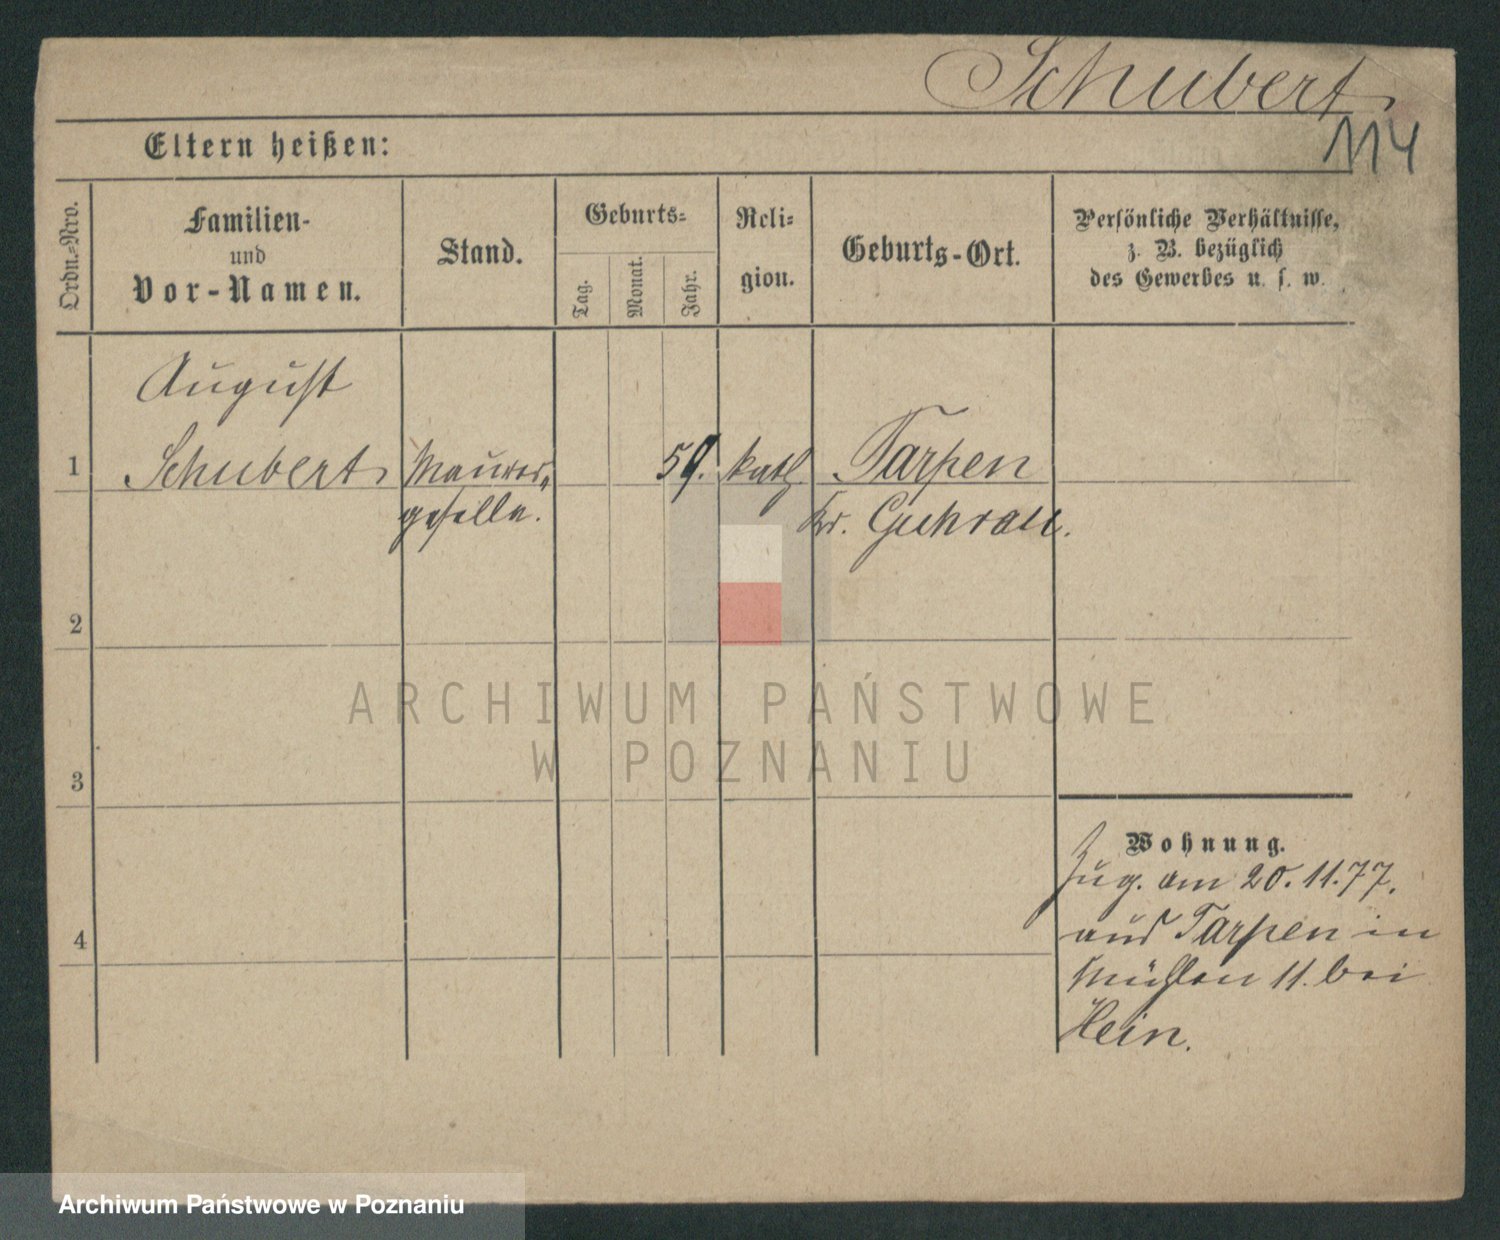 Schubert
114
Eltern heißen:
Ordn.-Nro.
Familien-
und
Vor-Namen.
Stand.
Geburts-
Tag.
Monat.
Jahr.
Reli-
gion.
Geburts-Ort.
Persönliche Verhältnisse,
z. B. bezüglich
des Gewerbes u. s. w.
August
1 Schubert Maurer- 59. kath Tarpen
geselle. Kr. Guhrau.
2
3
4
ARCHIWUM PAŃSTWOWE
W POZNANIU
Wohnung.
Zug. am 20.11.77.
aus Tarpen in
Mühlen 11. bei
Hein.
Archiwum Państwowe w Poznaniu